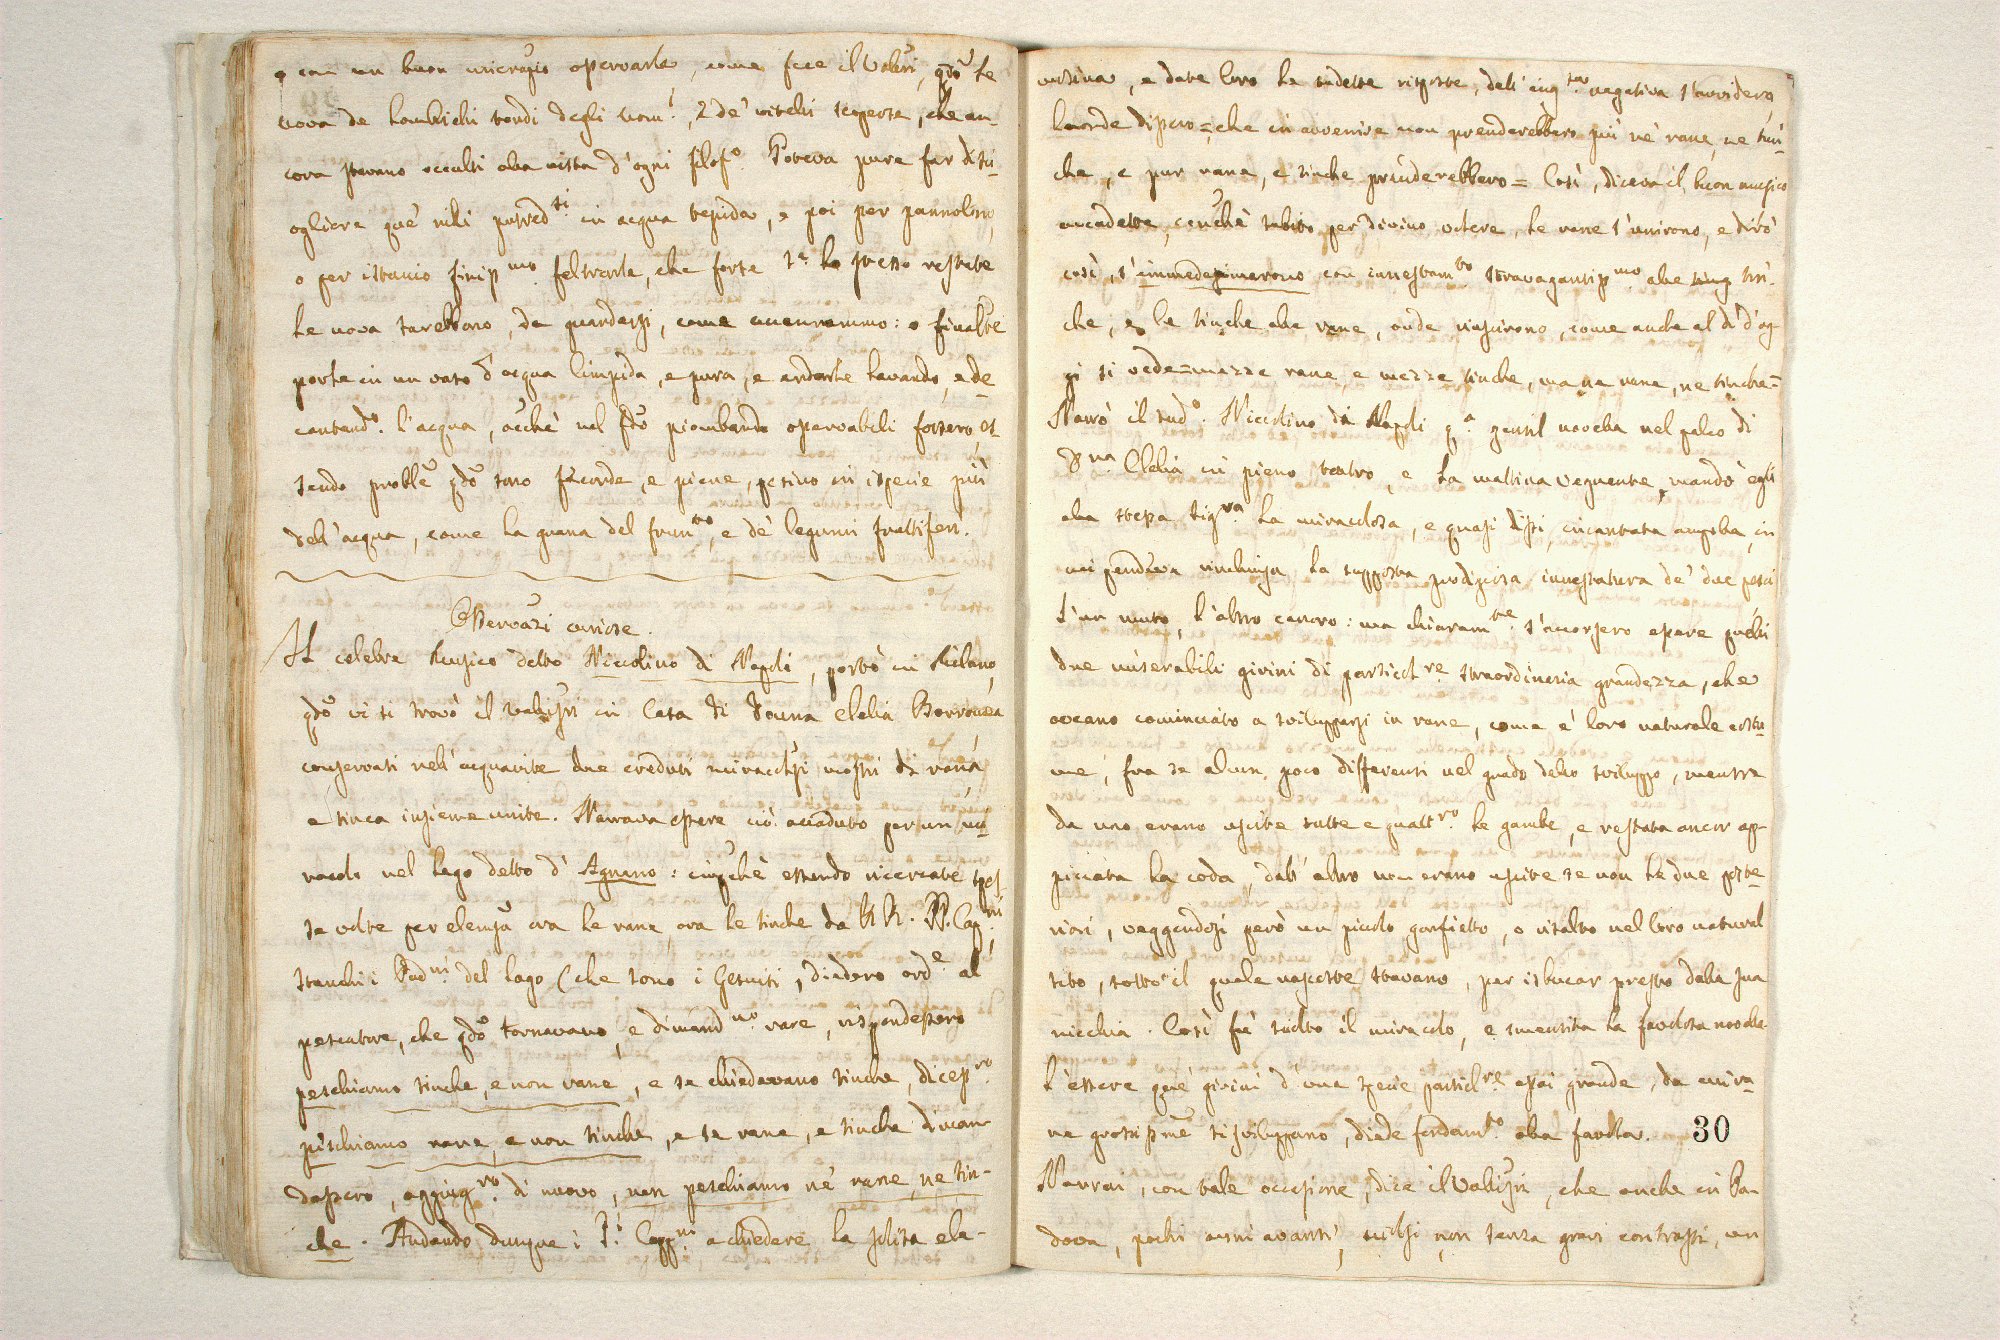 o con un buon microsᵖio osservarle, come fece il Valiri, qdo le
uova de lombrichi tondi degli uom.i, 2 de' vitelli scoperse, che an-
cora stavano occulti alla vista d'ogni filof.o Poteva pure far dissi-
ogliere que' nidi putred.ti in acqua tepida, e poi per pannolino,
o per istaccio finiss.mo feltrarle, che forse s.a lo stesso restate
le uova sarebbono, da guardarsi, come accennammo: o finalte
porle in un vaso d'acqua limpida, e pura, e andarle lavando, e de
cantand.o l'acqua, acchè nel fdo piombando osservabili fossero, es
sendo proble qdo sono fecorde, e piene, persino in ispecie più
dell'acqua, come la grana del frum.to, e de' legumi fruttiferi.
Osservazi curiose.
Il celebre Musico detto Niccolino di Napoli, portò in Milano,
qdo vi si trovò il Valisri in Casa di Donna Clelia Borromea
conservati nell'acquavite due creduti miracolosi mostri di rana,
e tinca insieme unite. Narrava essere ciò accaduto per un mi
racolo nel Lago detto d'Agnano: cinchè essendo ricercate spes-
se volte per elemosa ora le rane, ora le tinche da RR. PP. Cap.ni,
stanchi i Pad.ni del lago (che sono i Gesuiti, diedero ord.e al
pescatore, che qdo tornavano, e dimand.no rane, rispondessero
peschiamo tinche, e non rane, e se chiedevano tinche, dicess.ro
peschiamo rane, e non tinche, e se rane, e tinche diman
dassero, aggiug.ro di nuovo, non peschiamo nè rane, ne tin-
che. Andando dunque i P.i Capp.ni a chiedere la solita ele-
mosina, e date loro le sudette risposte, dell'ing.ta negativa s'avvidero,
laonde dissero = che in avvenire non prenderebbero più nè rane, ne tin-
che, e pur rane, e tinche prenderebbero = Così, diceva il buon musico
accadette, cenchè subito per divino volere, le rane s'unirono, e dirò
così, s'immedesimarono con innestam.to stravagantiss.mo alle ting tin-
che, e le tinche alle rane, onde riuscirono, come anche al dì d'og
gi si vede = mezze rane, e mezze tinche, ma ne rane, ne tinche =
Narrò il sud.o Niccolino di Napoli q.a gentil novella nel palco di
D.na Clelia in pieno teatro, e la mattina vegnente, mandò egli
alla stessa Sig.ra la miracolosa, e quasi dissi, incantata ampolla, in
cui pendeva rinchiusa la supposta prodigiosa innestatura de' due pesci
l'un muto, l'altro canoro: ma chiaram.te s'accorsero essere quelli
due miserabili girini di particol.re straordinaria grandezza, che
aveano cominciato a svilupparsi in rane, come è loro naturale costu
me, fra se alcun. poco differenti nel grado dello sviluppo, mentre
da uno erano uscite tutte e quatt.ro le gambe, e restata ancor ap-
piccata la coda, dall'altro non erano uscite se non le due poste
riori, veggendosi però un picciolo gonfietto, o risalto nel loro natural
sito, sotto il quale nascoste stavano, per isbucar presto dalla sua
nicchia. Così fù sciolto il miracolo, e smentita la favolosa novella.
L'essere que' girini d'una specie particl.re assai grande, da cui ra
ne grossissme si sviluppano, diede fondam.to alla favola.
30
Narrai, con tale occasione, dice il Valisri, che anche in Pa-
dova, pochi anni avanti, sciolsi non senza gran contrasti, un